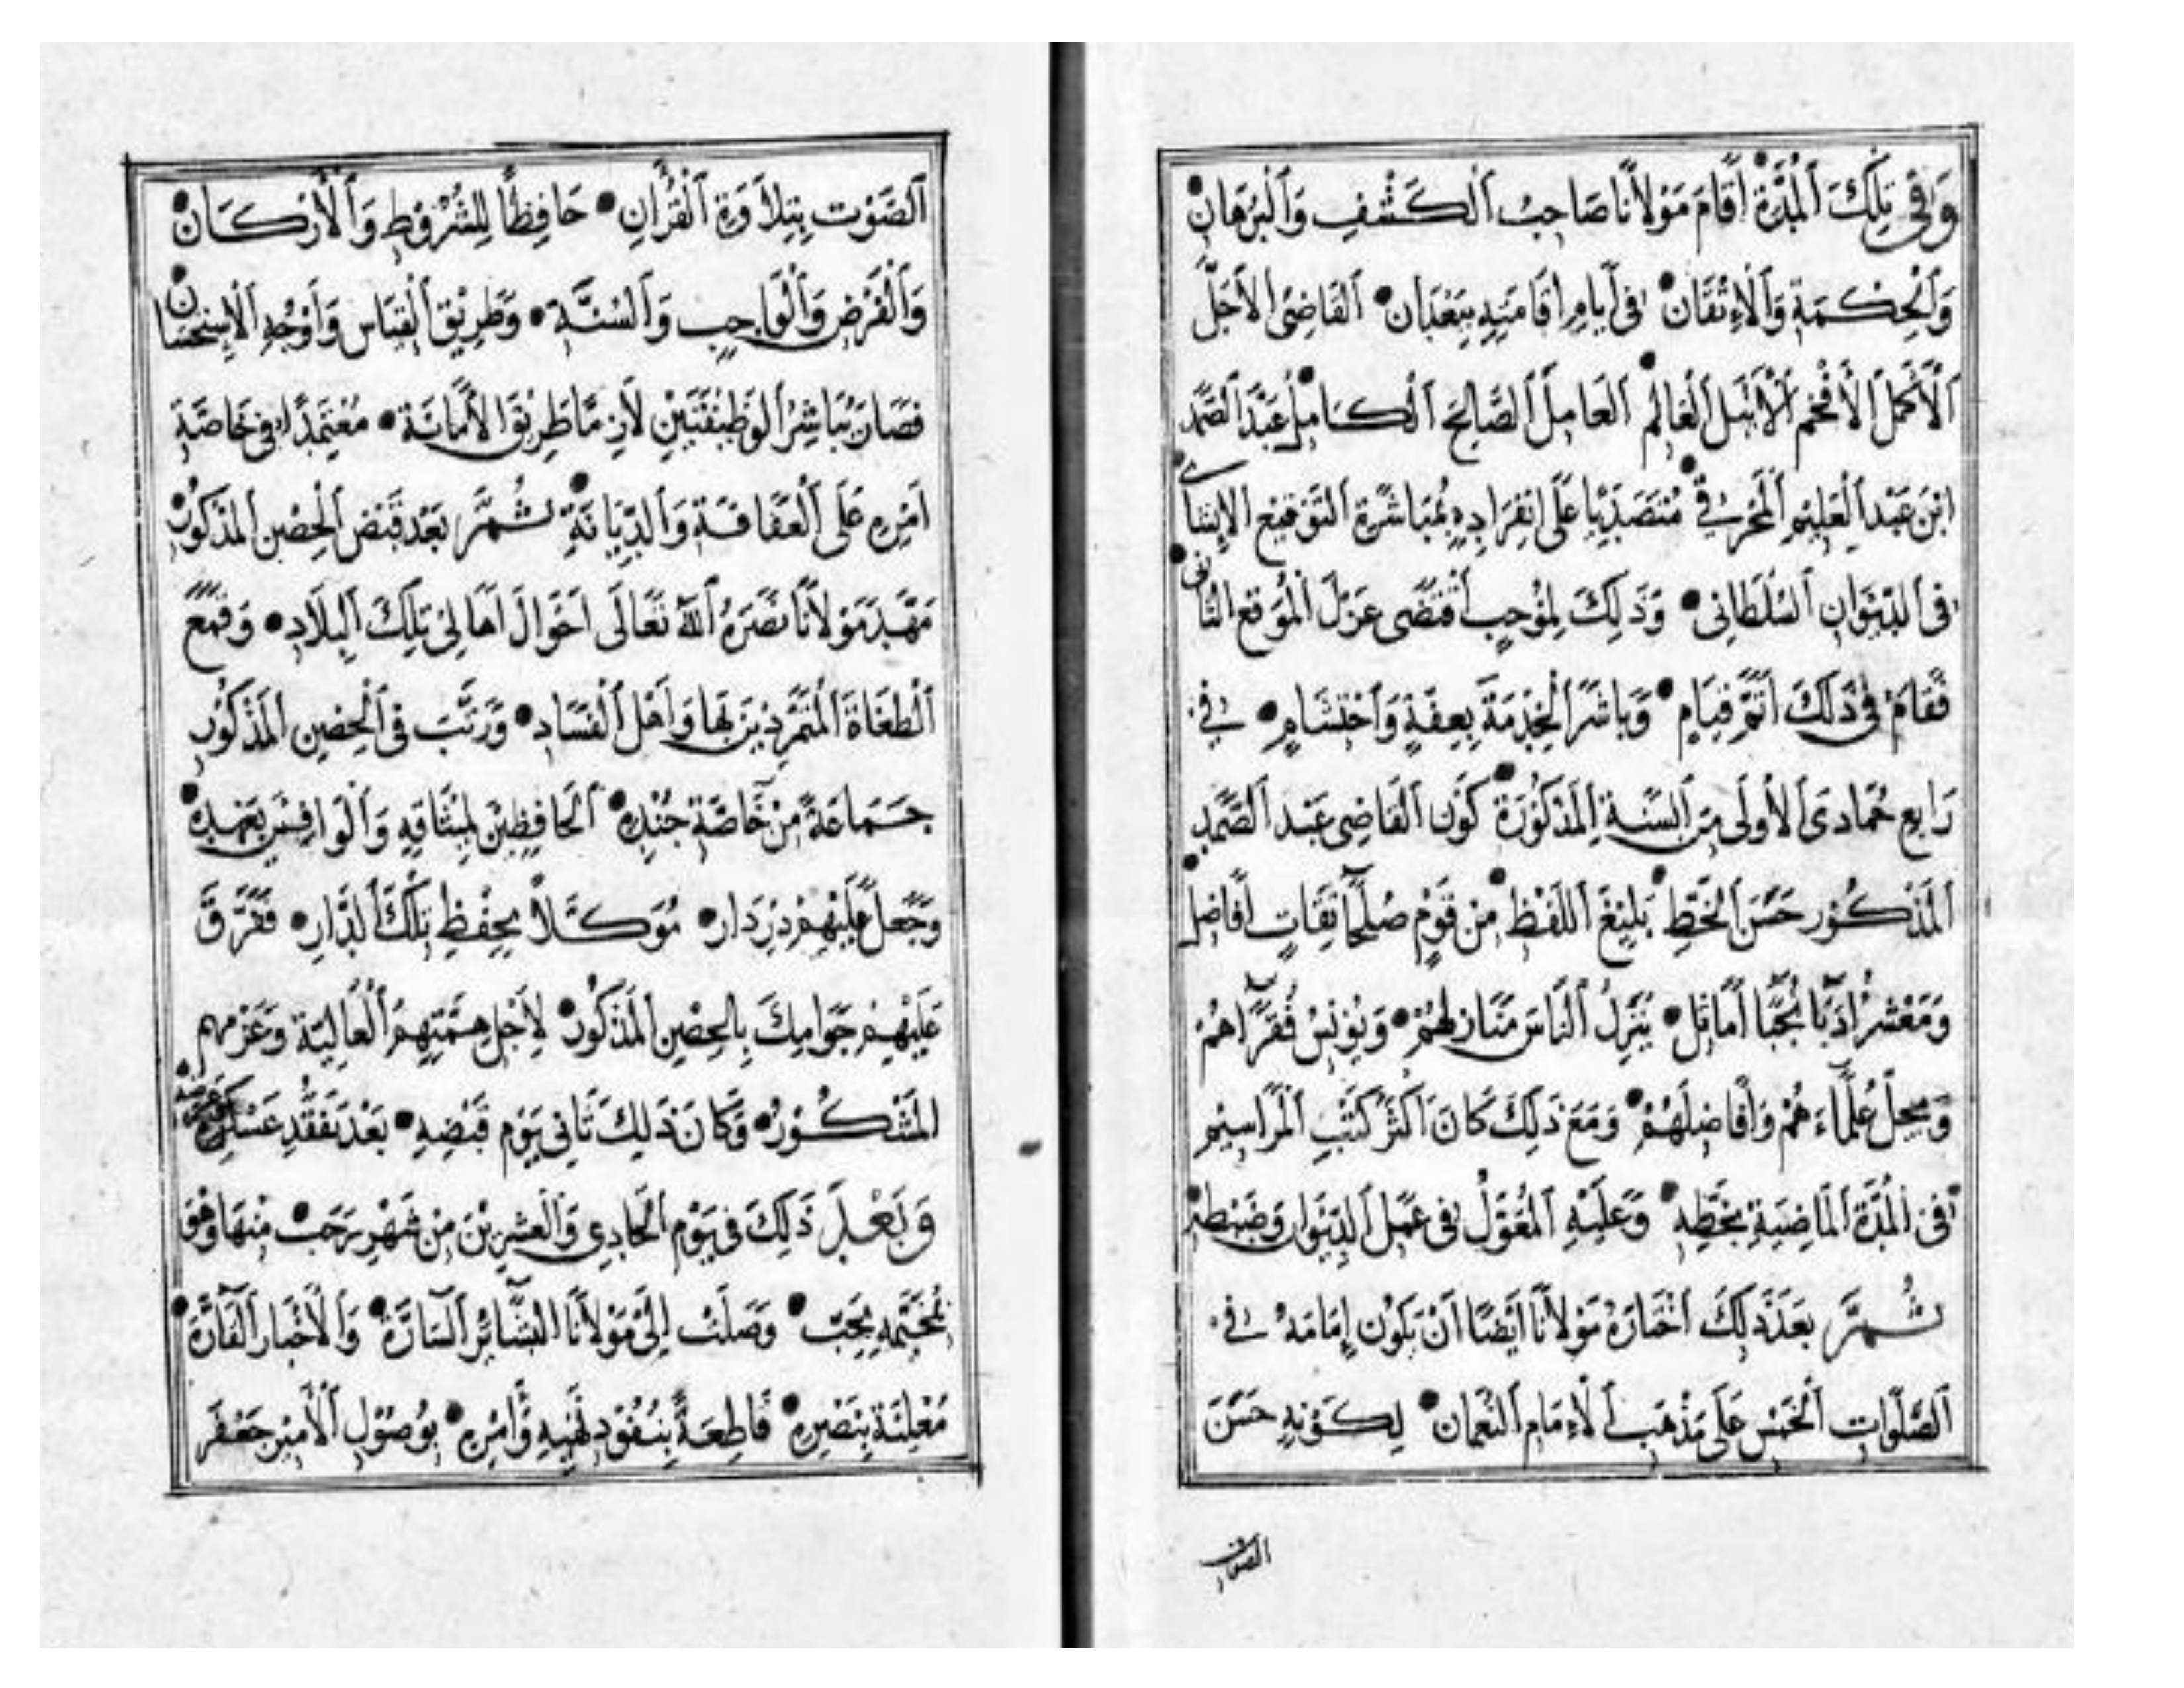 وَفِي تِلْكَ ٱلْمُدَّةِ أَقَامَ مَوْلَانَا صَاحِبُ ٱلْكَشْفِ وَٱلْبُرْهَانِ
وَٱلْحِكْمَةِ وَٱلْاِتْقَانِ • فِى أَيَّامِ اِقَامَتِهِ بِبَغْدَان • ٱلْقَاضِى الْأَجَلّ
ٱلْأَكْمَلَ ٱلْأَفْخَم ٱلْأَنْبَلَ ٱلْعَالِمَ • ٱلْعَامِلَ ٱلصَّالِحَ ٱلْكَامِلَ • عَبْدَ ٱلصَّمَد
ابْنَ عَبْدِ ٱلْعَلِيمِ • مُتَصَدِّيًا عَلَى انْفِرَادِهِ بِمُبَاشَرَةِ ٱلتَّوْقِيعِ الْإِنْشَآءِى
فِى ٱلدِّيْوَانِ ٱلسُّلْطَانِى • وَذَلِكَ لِمُوْجِبٍ ٱقْتَضَى عَزْلَ ٱلْمُوَقِّعِ الثَّانِى
فَقَامَ فِى ذَلِكَ أَتَمَّ قِيَامٍ • وَبَاشَرَ ٱلْخِدْمَةَ بِعِفَّةٍ وَٱحْتِشَامٍ • فِي
رَابِعِ جُمَادَى ٱلْأُولَى مِنَ ٱلسَّنَةِ ٱلْمَذْكُوْرَةِ • كَوْنَ ٱلْقَاضِى عَبْدِ ٱلصَّمَدِ •
ٱلْمَذْكُوْرِ حَسَنَ ٱلْخَطِّ • بَلِيْغَ ٱللَّفْظِ • مِنْ قَوْمٍ صُلَحَآ ثِقَاتٍ أَفَاضِلَ
وَمَعْشَرٍ أُدَبَآ نُجَبَآ أَمَاثِلَ • يُنْزِلُ ٱلنَّاسَ مَنَازِلَهُمْ • وَيُوْنِسُ فُقَرَآهُمْ
وَيُجِلُّ عُلَمَآءَهُمْ وَأَفَاضِلَهُمْ • وَمَعَ ذَلِكَ كَانَ أَكْثَرُ كَتْبِ ٱلْمَرَاسِيْمِ
فِى ٱلْمُدَّةِ ٱلْمَاضِيَةِ بِخَطِّهِ • وَعَلَيْهِ ٱلْمُعَوَّلُ فِى عَمَلِ ٱلدِّيْوَانِ وَضَبْطِهِ •
ثُمَّ بَعْدَ ذَلِكَ اخْتَارَهُ مَوْلَانَا أَيْضًا أَنْ يَكُوْنَ إِمَامَهُ فِي
ٱلصَّلَوَاتِ ٱلْخَمْسِ عَلَى مَذْهَبِ ٱلْاِمَامِ ٱلنُّعْمَانِ • لِكَوْنِهِ حَسَنَ
الصوت
ٱلصَّوْتِ بِتِلَاوَةِ ٱلْقُرْآنِ • حَافِظًا لِلشُّرُوْطِ وَٱلْأَرْكَانِ •
وَٱلْفَرْضِ وَٱلْوَاجِبِ وَٱلسُّنَّةِ • وَطَرِيْقِ ٱلْقِيَاسِ وَأَوْجُهِ ٱلْاِسْتِحْسَانِ •
فَصَارَ يُبَاشِرُ ٱلْوَظِيْفَتَيْنِ لَازِمًا طَرِيْقَ الْأَمَانَةِ • مُعْتَمِدًا فِى خَاصَّةِ
أَمْرِهِ عَلَى ٱلْعَفَافَةِ وَٱلدِّيَانَةِ • ثُمَّ بَعْدَ قَبْضِ ٱلْحِصْنِ ٱلْمَذْكُوْرِ
مَهَّدَ مَوْلَانَا نَصَرَهُ ٱللّٰهُ تَعَالَى اَحْوَالَ اَهَالِى تِلْكَ ٱلْبِلَادِ • وَقَمَعَ
ٱلْطُغَاةَ ٱلْمُتَمَرِّدِيْنَ بِهَا وَأَهْلَ ٱلْفَسَادِ • وَرَتَّبَ فِى ٱلْحِصْنِ ٱلْمَذْكُوْرِ
جَمَاعَةً مِنْ خَاصَّةِ جُنْدِهِ • ٱلْحَافِظِيْنَ لِمِيْثَاقِهِ وَٱلْوَافِيْنَ بِعَهْدِهِ •
وَجَعَلَ عَلَيْهِمْ دِزْدَار • مُوَكَّلًا بِحِفْظِ تِلْكَ ٱلدَّارِ • فَفَرَّقَ
عَلَيْهِمْ جَوَامِكَ بِالْحِصْنِ ٱلْمَذْكُوْرِ • لِأَجْلِ هِمَّتِهِمُ ٱلْعَالِيَةِ وَعَزْمِهِم
الْمَشْكُوْرِ • وَكَانَ ذَلِكَ ثَانِى يَوْمِ قَبْضِهِ • بَعْدَ تَفَقُّدِ عَسْكَرِهِ
وَبَعْدَ ذَلِكَ فِى يَوْمِ ٱلْحَادِى وَٱلْعِشْرِيْنَ مِنْ شَهْرِ رَجَبْ • مِنْهَا وَهُوَ
بِمُخَيَّمِهِ بِحَجَبْ • وَصَلَتْ إِلَى مَوْلَانَا ٱلْبَشَآئِرُ ٱلسَّآرَّةُ • وَٱلْأَخْبَارُ ٱلْقَآرَّةُ •
مُعْلِنَةً بِنَصْرِهِ • قَاطِعَةً بِنُفُوْدِ نَهْيِهِ وَأَمْرِهِ • بِوُصُوْلِ ٱلْأَمِيْرِ جَعْفَر